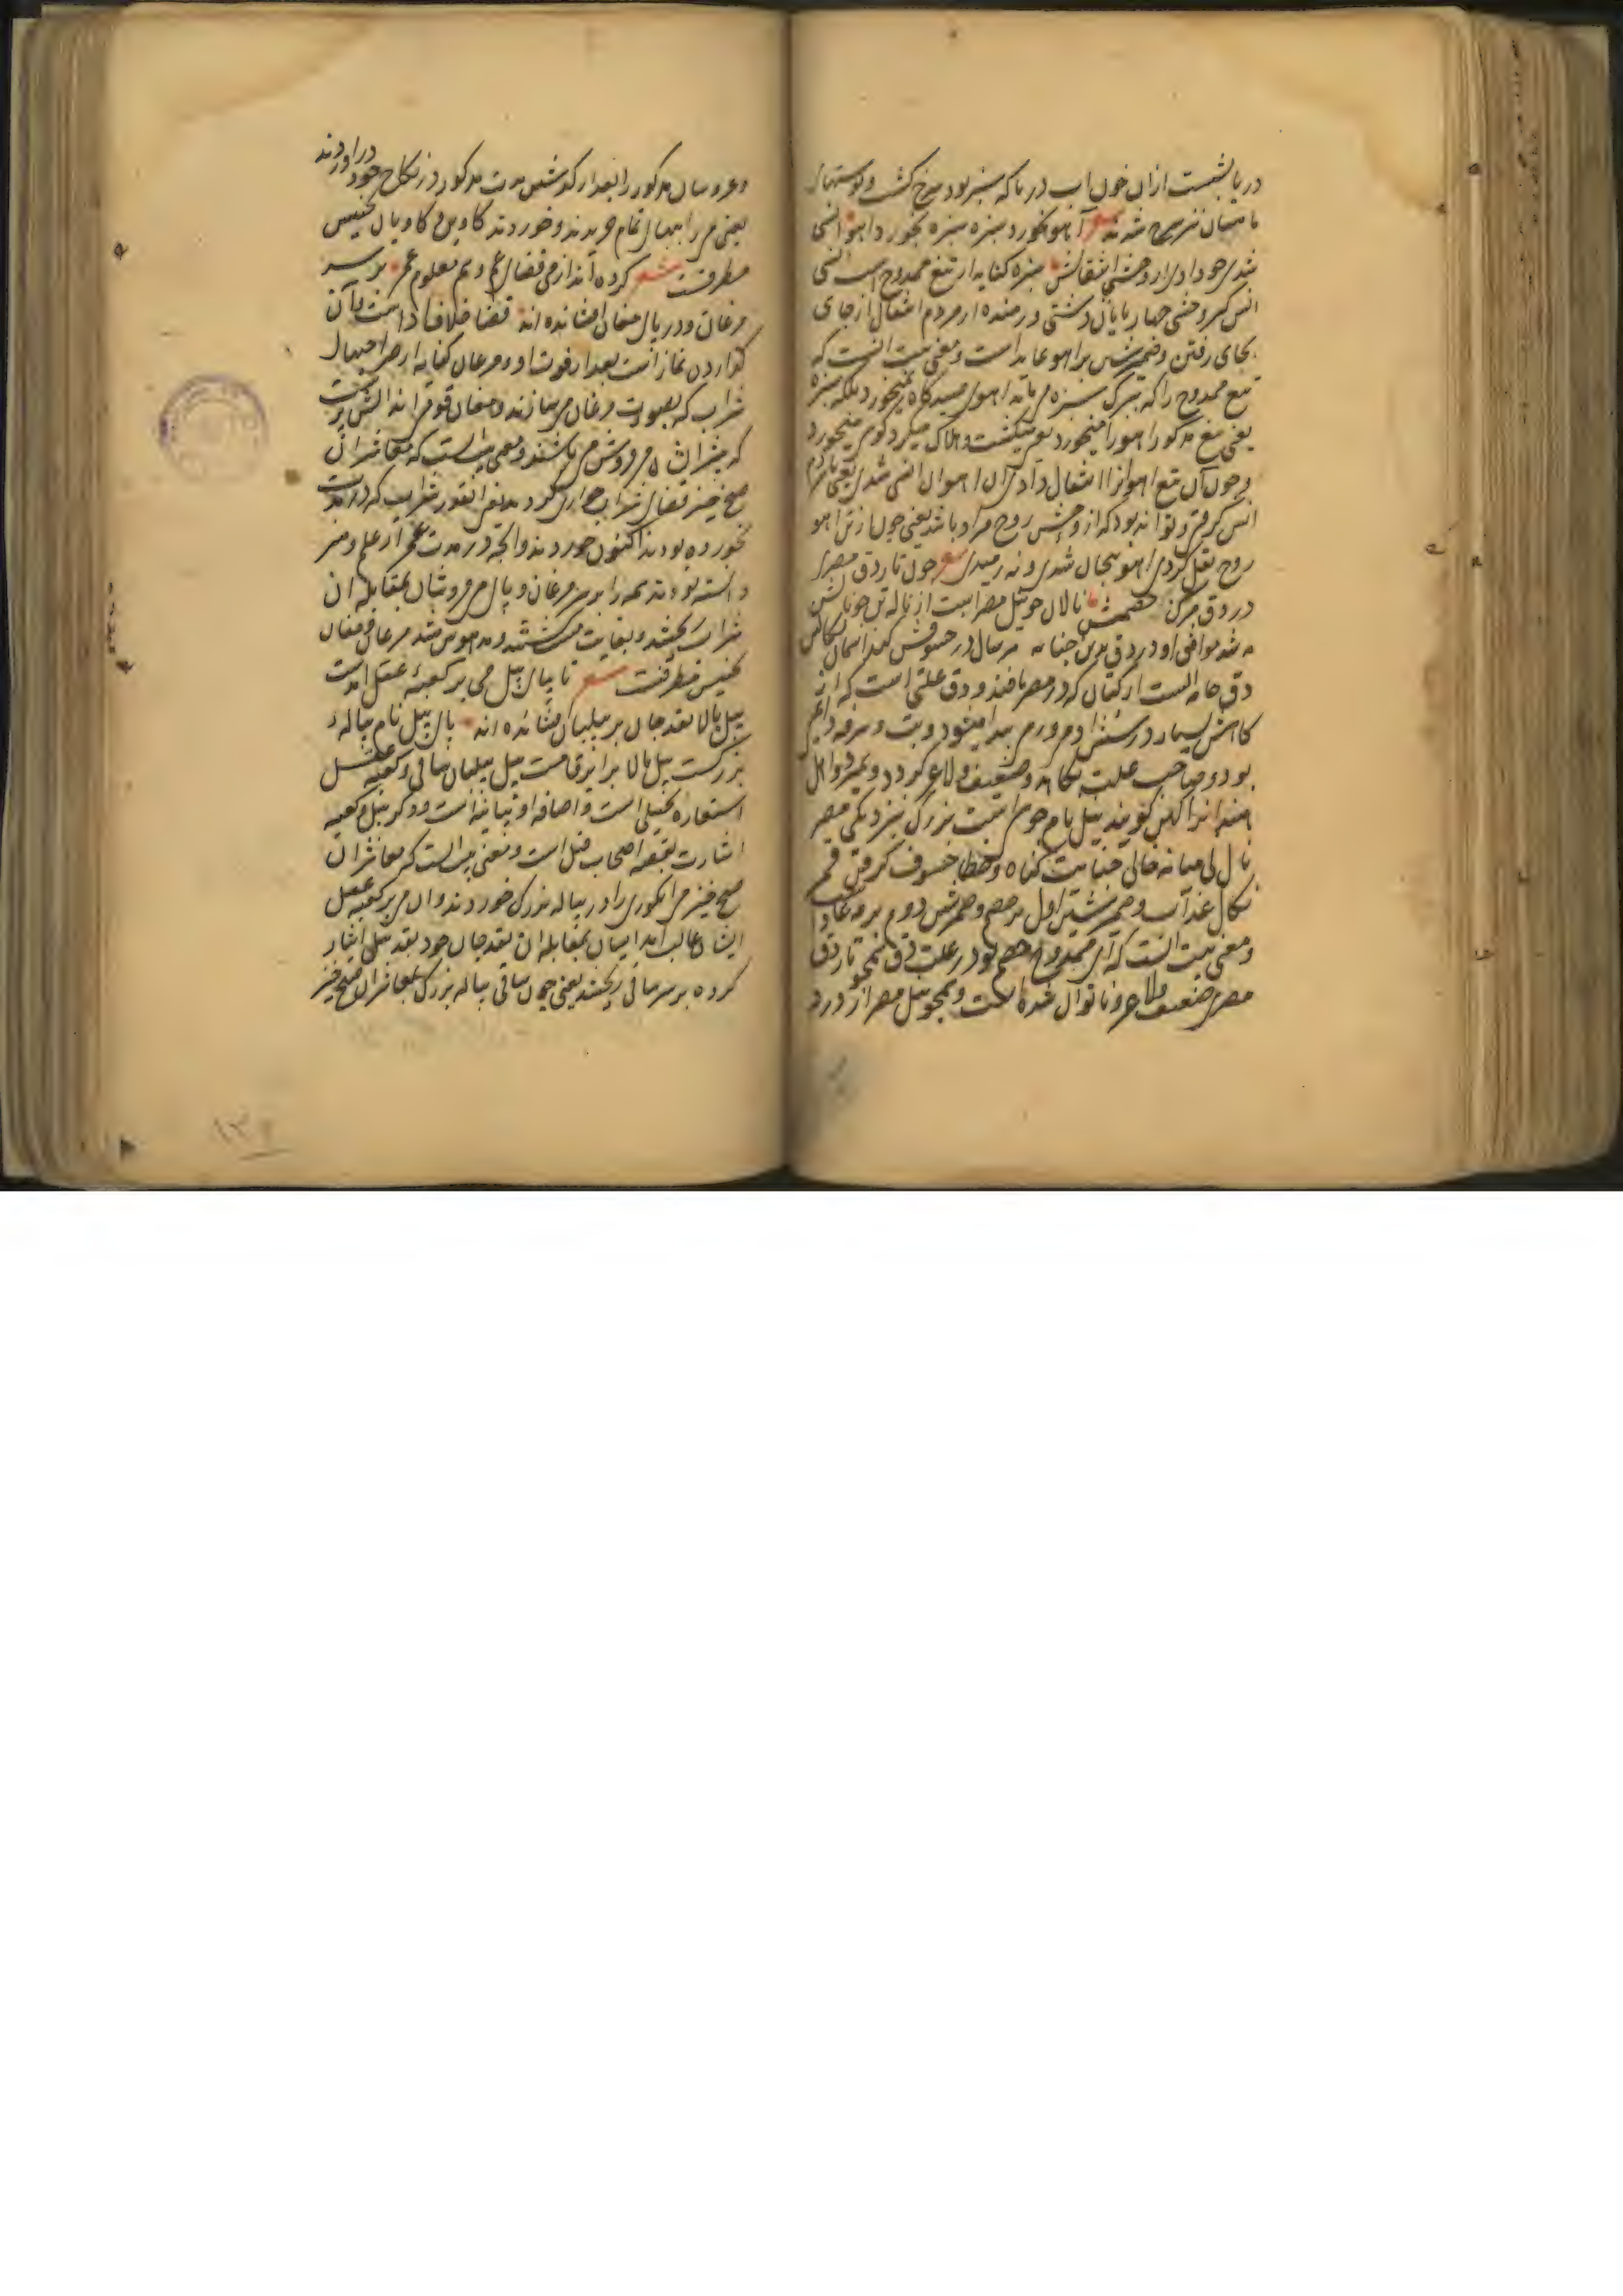 دریا بشست ازان خون اب دریا که سبز بود سرخ کشت و پوستهای
ماهیان نیز سرخ شدند شعر آهو نخورد سبزه سبزه بخورد آهو انسی
شدی چو دادی از وحشی انتقالش سبزه کنایه از تیغ ممدوح است انسی
انس گیر وحشی چهارپایان دشتی و رمنده از مردم انتقال از جای
بجای رفتن و ضمیر شین براهو عاید است و معنی بیت انست که
تیغ ممدوح را که برنگ سبزه می ماند اهوی صیدگاه نمیخورد بلکه سبزه
یعنی تیغ مذکور اهو را میخورد یعنی میکشت و هلاک میکرد گویی میخورد
و چون آن تیغ اهو را انتقال دادی ان اهوان انسی شدی یعنی بامردم
انس گرفتی و تواند بود که از وحشی روح مراد باشد یعنی چون از تن اهو
روح نقل کردی اهو بیجان شدی و نه رمیدی شعر چون تار دق مصری
در دق مرگ خصمش نالان چو نیل مصر است از ناله تن چو نالش
نه شد موافق او در دق بدین جنایه هر سال در خسوفش کند اسمان نکالش
دق جامه ایست از کتان که در مصر بافند و دق علتی است که از
کاهش بسیار در شش ادم ورم پیدا میشود و تب و سرفه دایم
بود و صاحب علت بکاهد و ضعیف و لاغر گردد و بمیرد و اهل
هند انرا کهین گویند نیل نام جوی ایست بزرگ نزدیکی مصر
نال نی میانه خالی جنایت گناه و خطا خسوف گرفتن قمر
نکال عذاب و ضمیر شین اول بر خصم و ضمیر شین دوم بر مه عاید است
و معنی بیت انست که ای ممدوح خصم تو در علت دق همچو تار دق
مصری ضعیف و لاغر و ناتوان شده است و همچو نیل مصر از درد
و عروسان مذکور را بعد از گذشتن مدت مذکور در نکاح خود دراوردند
یعنی می را بهای تمام خریدند و خوردند کاوس و کاویان تجنیس
مطرفت شعر کرده اند از می قضای عمر و هم معلوم عمر بر سر
مرغان و در پای مغان افشانده اند قضا خلاف ادا است و آن
گذاردن نماز است بعد از فوت او و مرغان کنایه از صراحیهای
شراب که بصورت مرغان می سازند و مغان قومی اند اتش پرست
که بیشتر ایشان می فروش می باشند و معنی بیت انست که معاشران
صبح خیز قضای شراب خواری کردند یعنی انقدر شراب که در مدت
نخورده بودند اکنون خوردند و انچه در مدت عمر از علم و هنر
دانسته بودند همه را بر سر مرغان و پای می فروشان بمقابله ان
شراب ریختند و بغایت مست شدند و مدهوش شدند مرغان و مغان
تجنیس مطرفت شعر تا بپای پیل می بر کعبه عقل امده است
پیل بالا نقد جان بر پیلبان افشانده اند پای پیل نام پیاله
بزرگست پیل بالا برابر قامت پیل پیلبان ساقی و کعبه عقل
استعاره تخییلی است و اضافه او بیانیه است و ذکر پیل و کعبه
اشارت بقصه اصحاب فیل است و معنی بیت انست که معاشران
صبح خیز می انگوری را در پیاله بزرگ خوردند و ان می بر کعبه عقل
ایشان غالب امد ایشان بمقابله ان نقد جان خود بقد پیل ایثار
کرده بر سر ساقی ریختند یعنی چون ساقی پیاله بزرگ بمعاشران صبح خیز